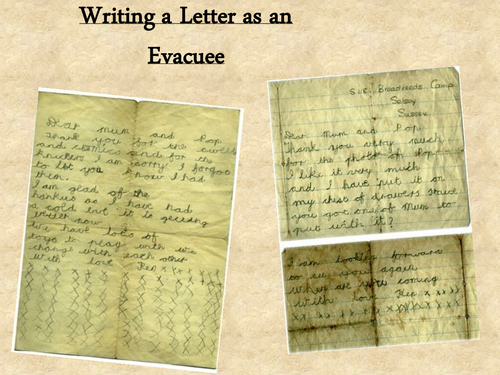 Writing a Letter as an
Evacuee
Dear Mum and Pop
Thank you for the
and and for the
knickers I am sorry I forgot
to let you know I had
them.
I am glad of the
hankies as I have had
a cold but it is getting
better now
We have lots of
toys to play with we
change with each other
With love x x x x x x
S.W.R. Broadreeds Camp
Selsey
Sussex
Dear Mum and Pop.
Thank you very much
for the photo of Pop
I like it very much
and I have put it on
my chest of drawers have
you got one of Mum to
put with it?
I am looking forward
to see you again
When are you coming
With love x x x x